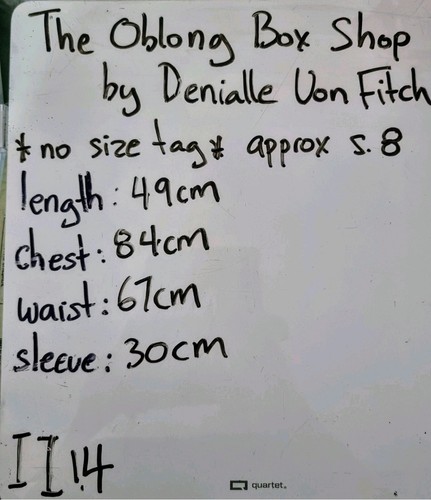 The Oblong Box Shop
by Denialle Von Fitch
*no size tag* approx s. 8
length: 49cm
chest: 84cm
waist: 67cm
sleeve: 30cm
II 1.4
quartet.